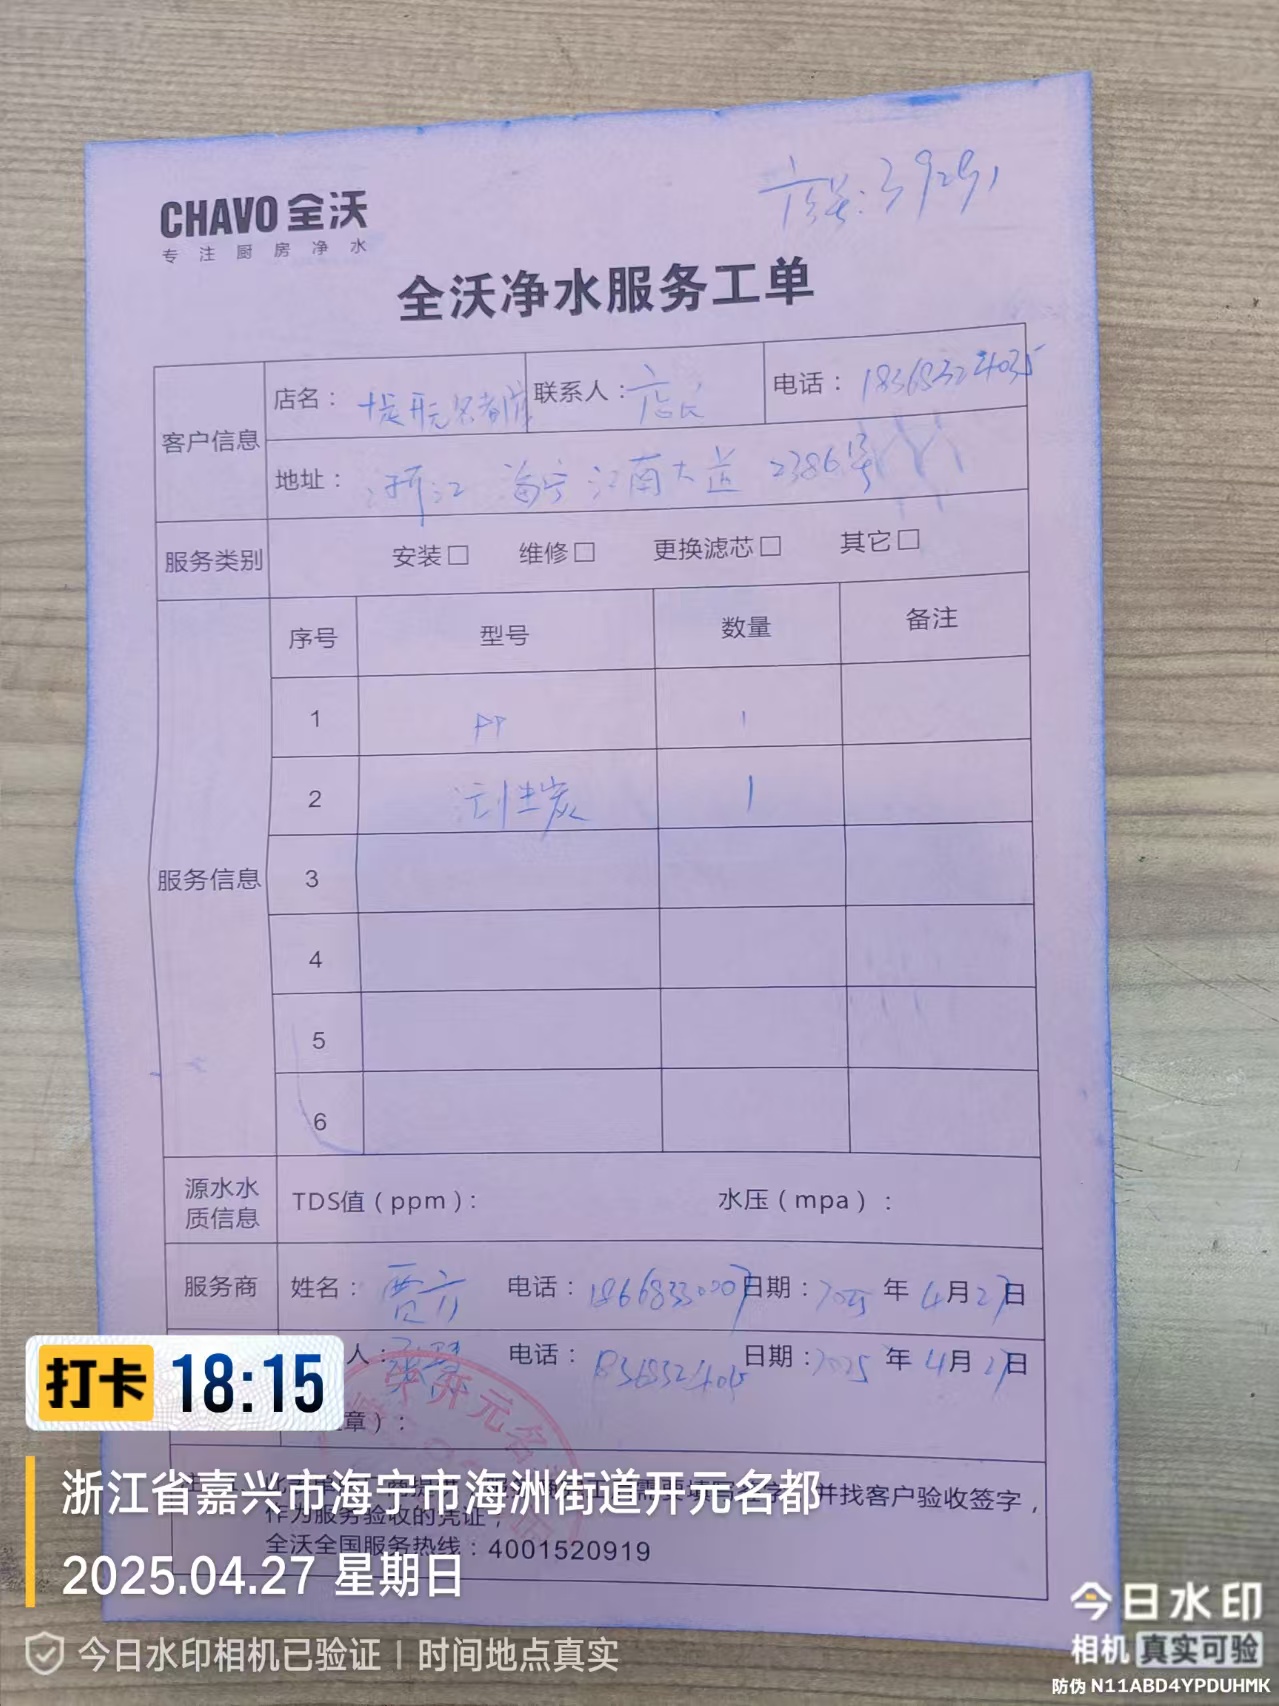 CHAVO 全沃
专注厨房净水
全沃净水服务工单
客户信息 店名： 联系人：店长 电话：
地址：浙江 海宁 江南大道 2386号
服务类别 安装□ 维修□ 更换滤芯□ 其它□
服务信息 序号 型号 数量 备注
1 PP 1
2 活性炭 1
3
4
5
6
源水水质信息 TDS值（ppm）： 水压（mpa）：
服务商 姓名：贾 电话： 日期：2025年4月27日
人： 电话： 日期：2025年4月27日
章）：
开元名
并找客户验收签字，
作为服务验收的凭证；
全沃全国服务热线：4001520919
打卡 18:15
浙江省嘉兴市海宁市海洲街道开元名都
2025.04.27 星期日
今日水印相机已验证 | 时间地点真实
今日水印
相机 真实可验
防伪 N11ABD4YPDUHMK